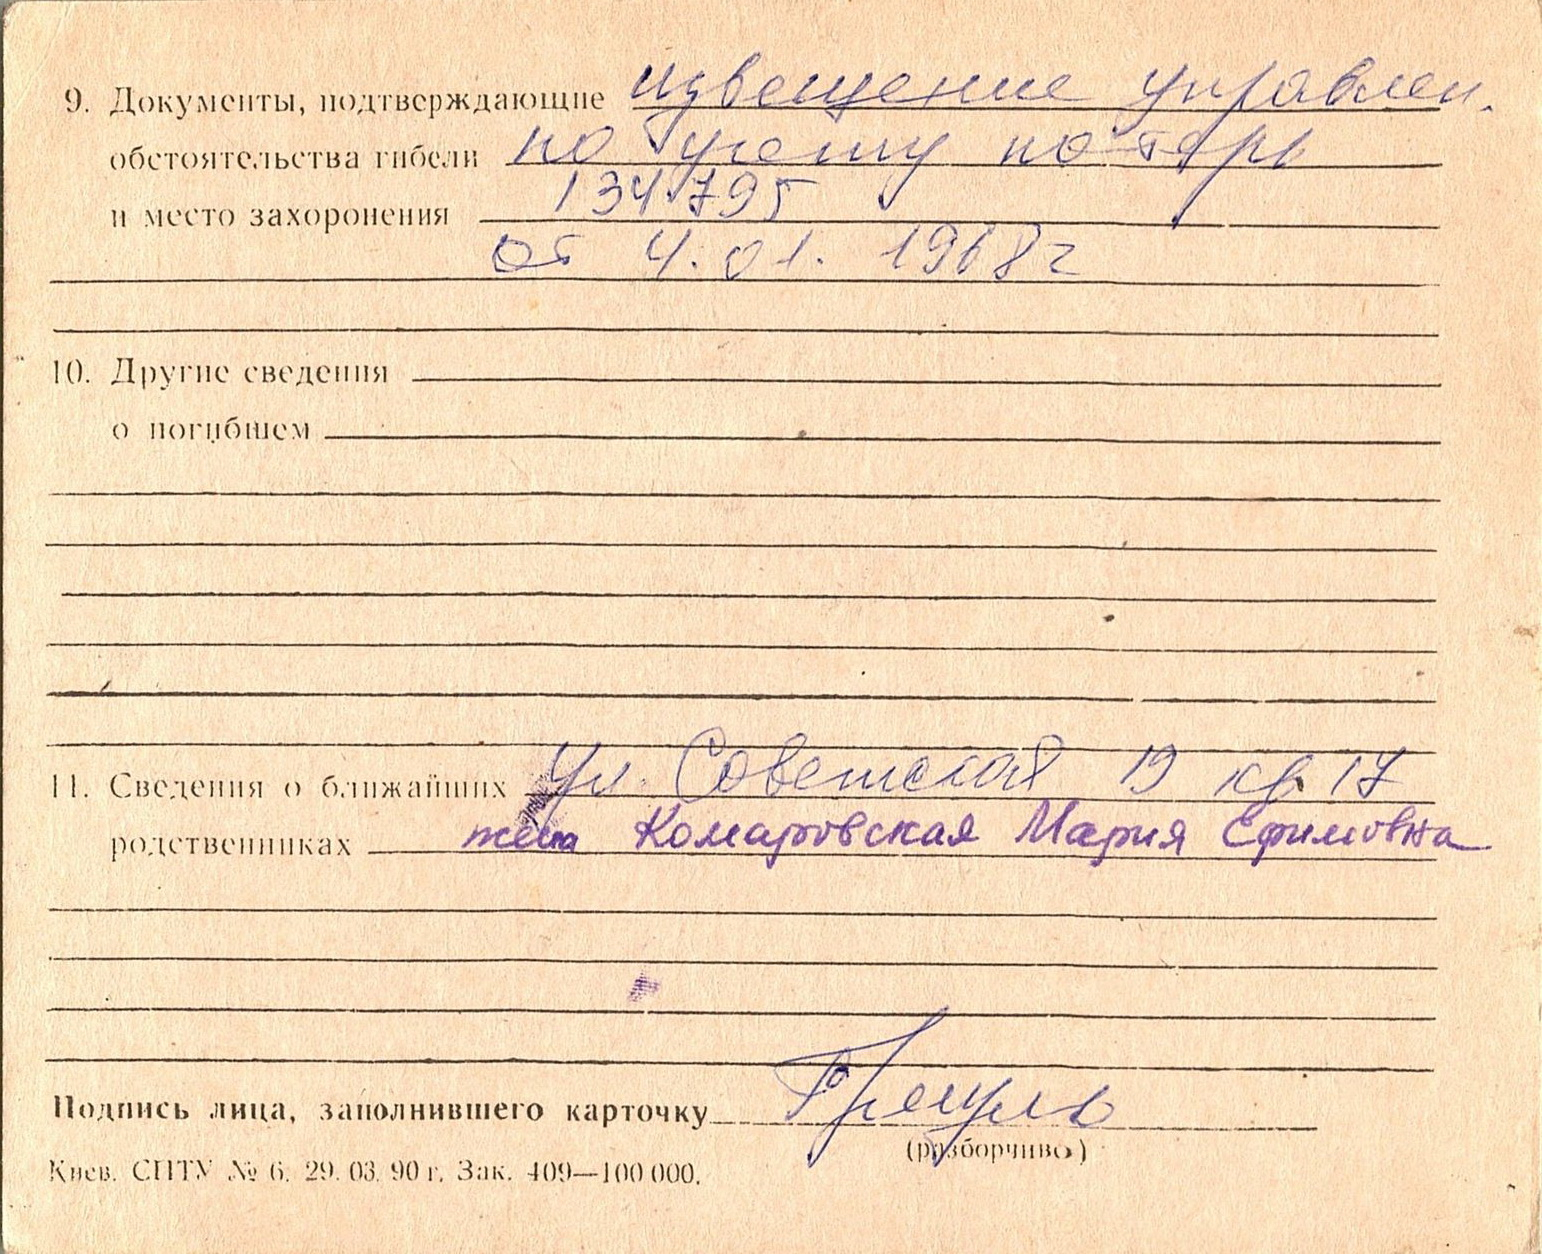 9. Документы, подтверждающие извещение управлен.
обстоятельства гибели по учету потерь
и место захоронения 134795
от 4.01.1968г
10. Другие сведения
о погибшем
11. Сведения о ближайших ул. Советская 19 кв 17
родственниках жена Комаровская Мария Ефимовна
Подпись лица, заполнившего карточку
(разборчиво)
Киев. СПТУ № 6. 29. 03. 90 г. Зак. 409—100 000.